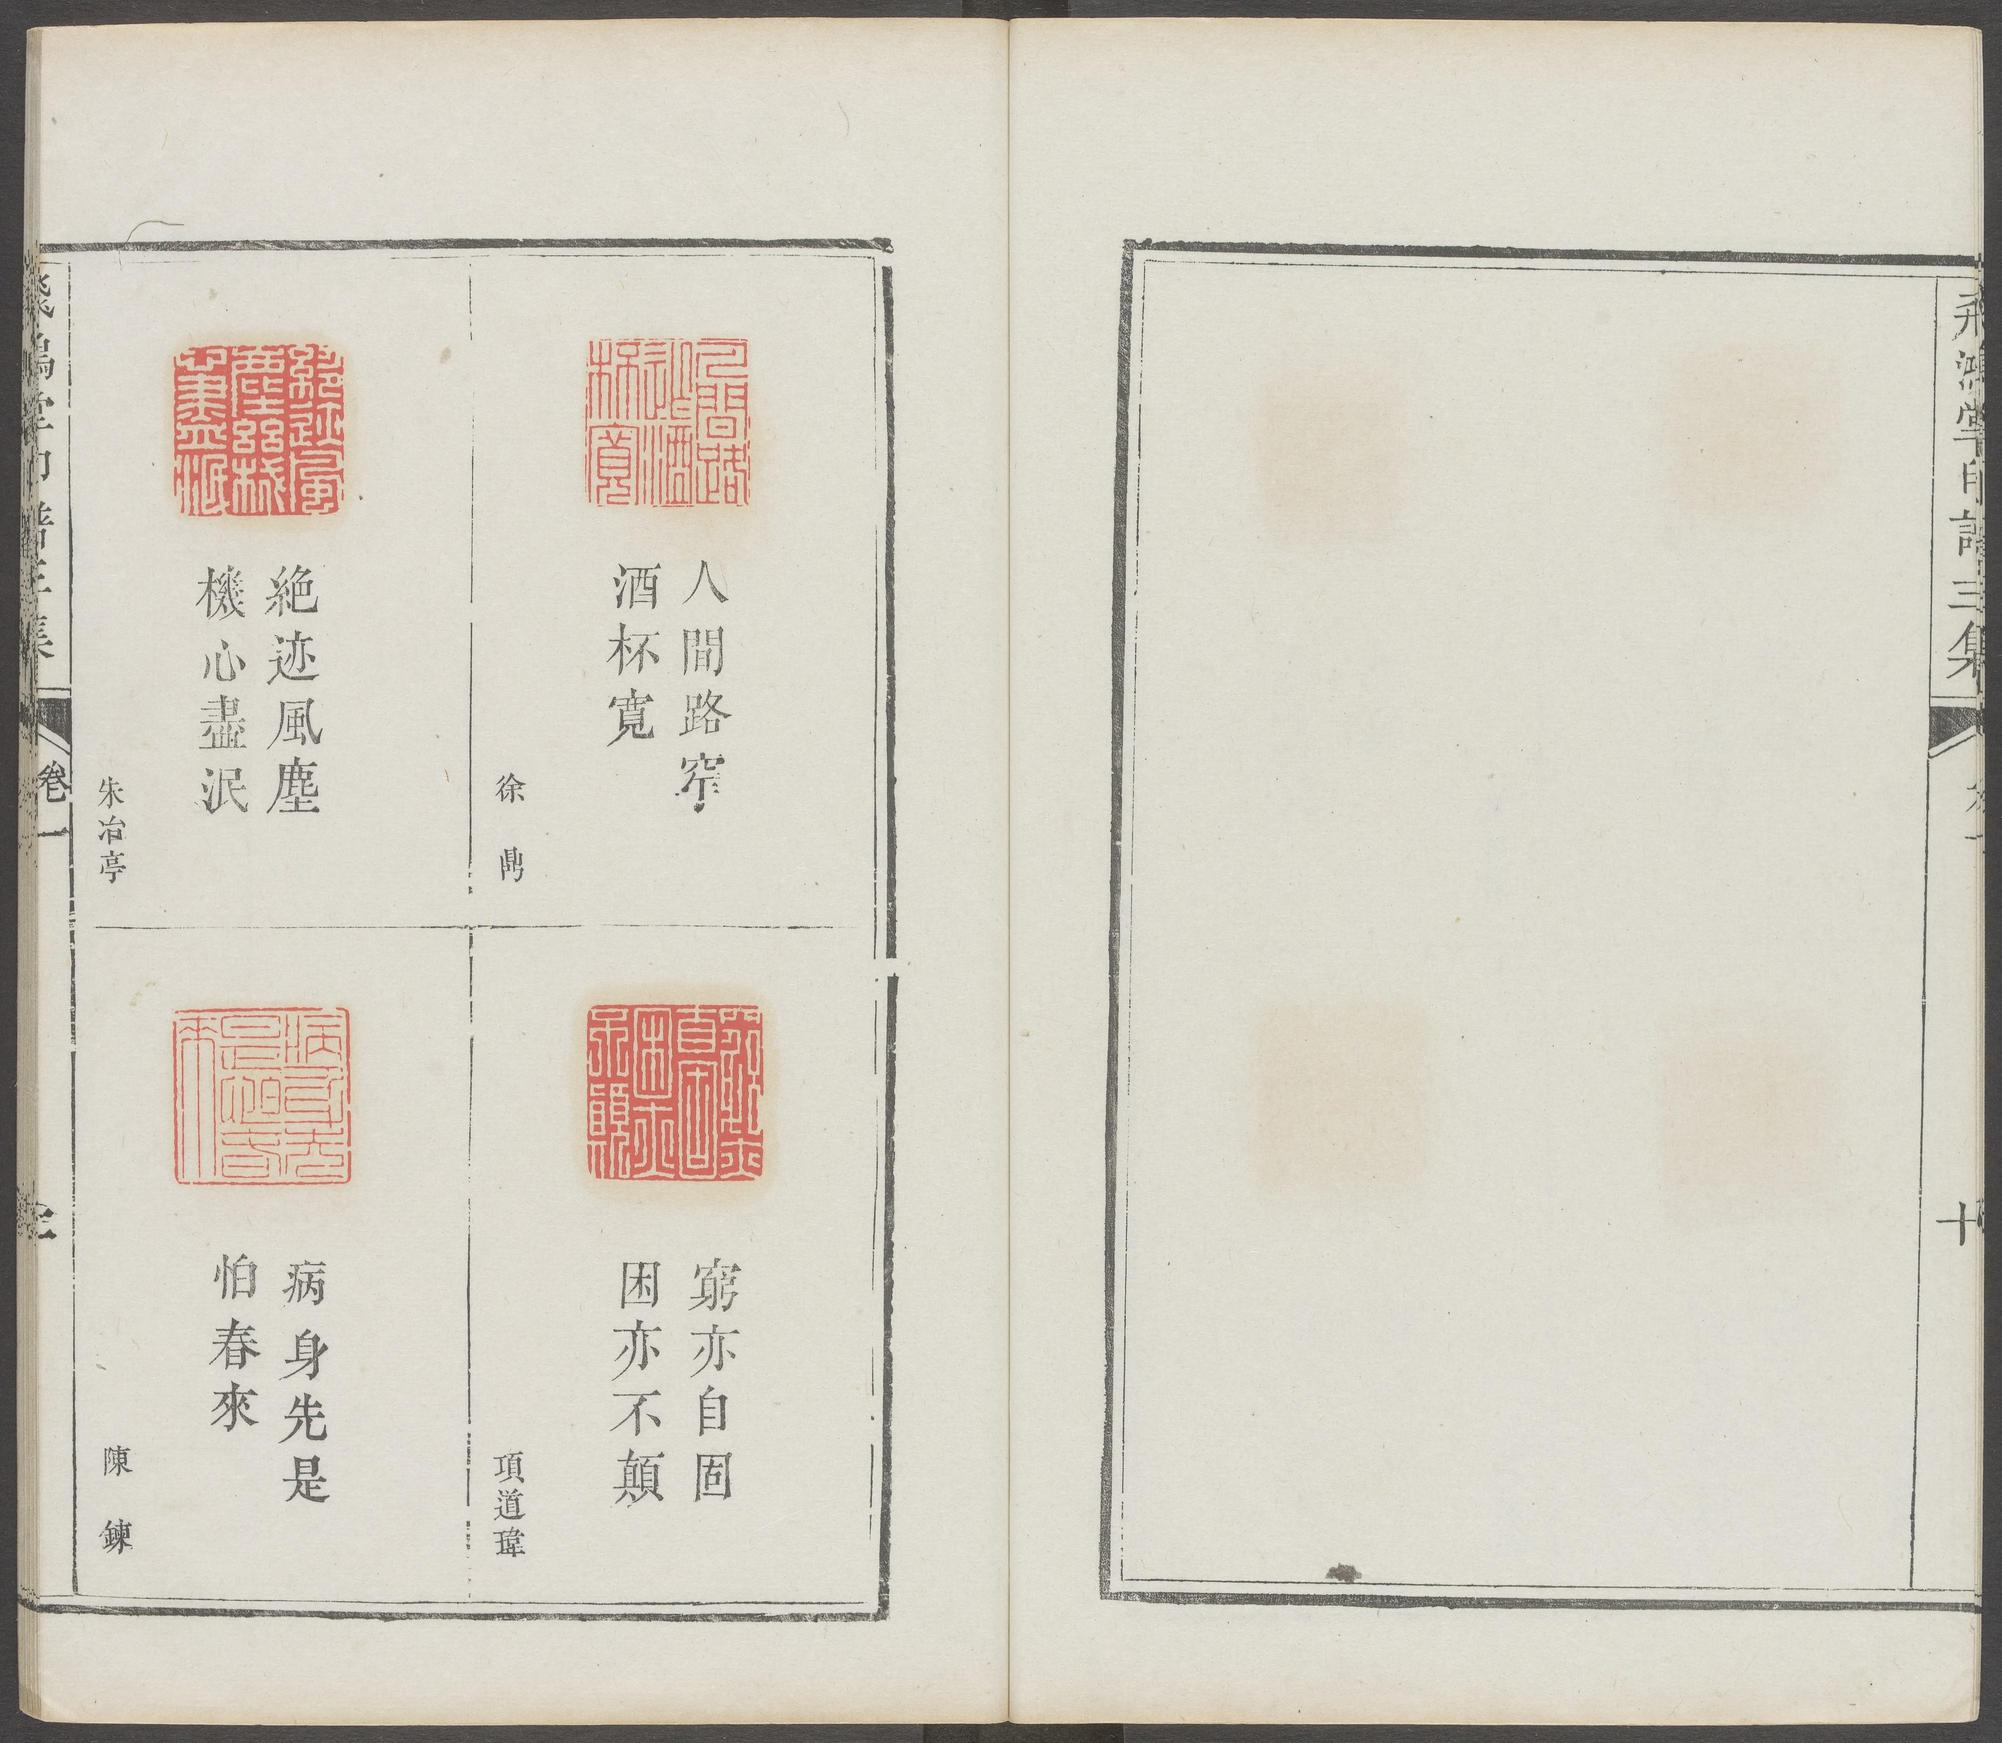 飛鴻堂印譜三集
卷一
十
人間路窄
酒杯寬
徐鼎
窮亦自固
困亦不顛
項道瑋
絶迹風塵
機心盡泯
朱冶亭
病身先是
怕春來
陳鍊
飛鴻堂印譜三集
卷一